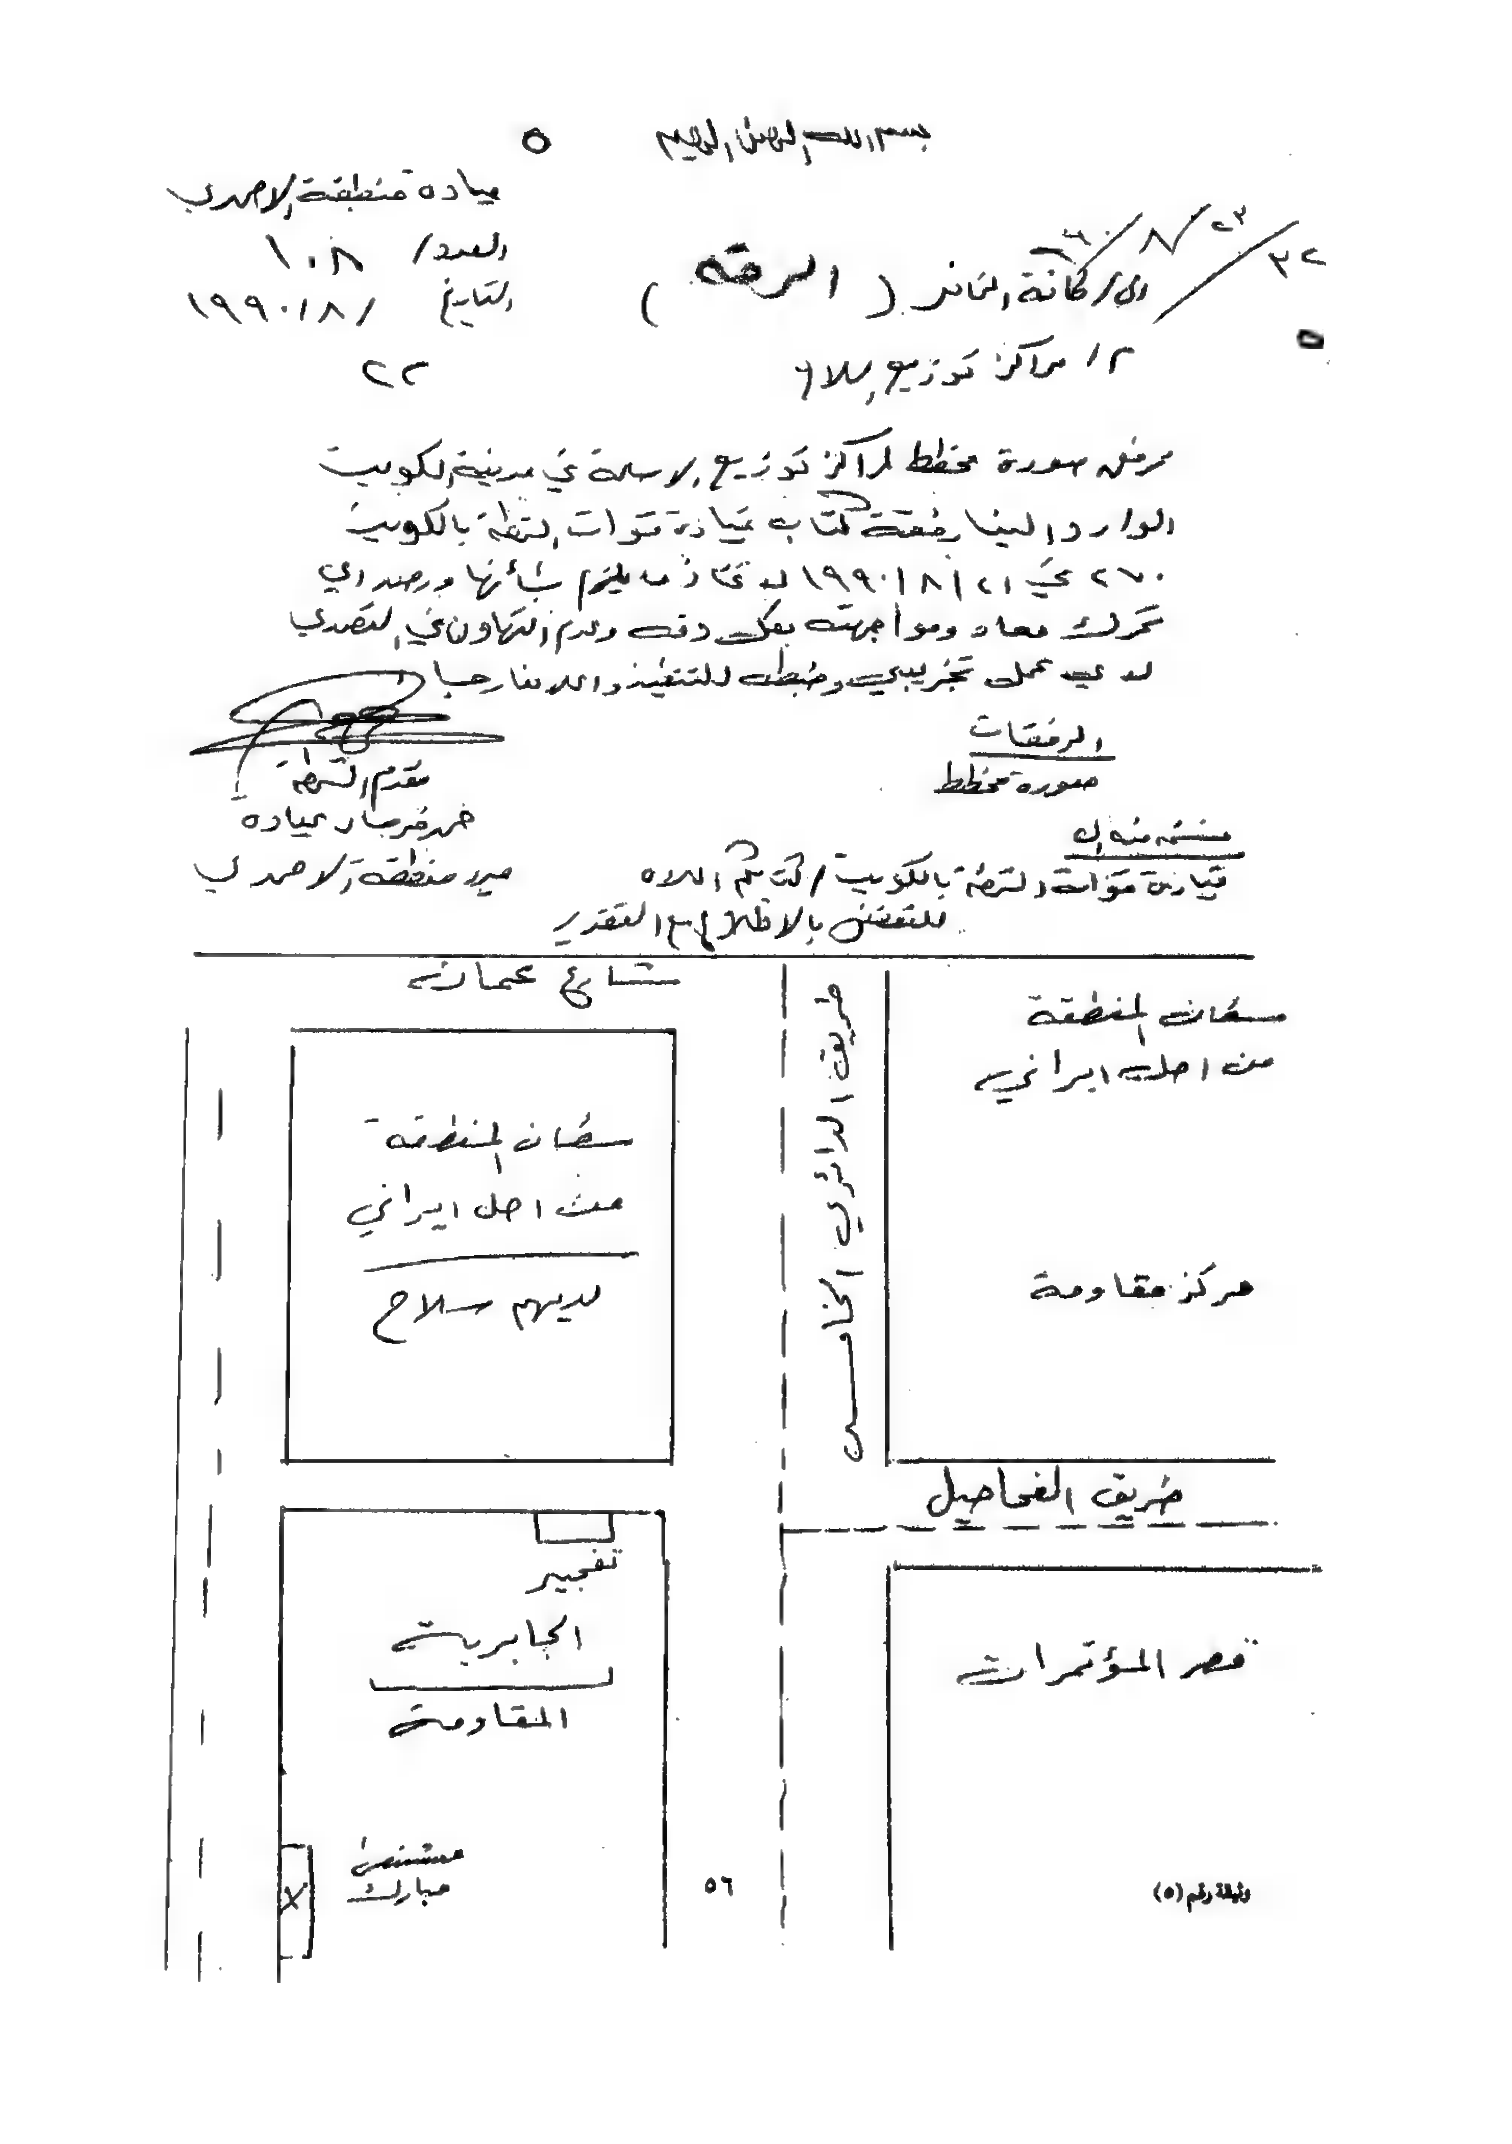 بسم الله الرحمن الرحيم
٥
قيادة منطقة الاحمدي
العدد/ ١٠٨
التاريخ / ١٩٩٠/٨
٢٢
٢٣/٨/٩٠
٣٢
الى/ كافة المخافر ( الرقه )
م/ مراكز توزيع السلاح
مرفق صورة مخطط لمراكز توزيع الاسلحة في مدينة الكويت
الوارد الينا رفقة كتاب قيادة قوات الشرطة بالكويت
٢٦٠ في ٢١/٨/١٩٩٠ لاتخاذ ما يلزم بشأنها ورصد اي
تحرك معاد ومواجهته بكل دقه وعدم التهاون في التصدي
لاي عمل تخريبي وضبطه للتنفيذ واعلامنا رجاءا
المرفقات
صورة مخطط
مقدم الشرطة
مدير منطقة الاحمدي
نسخه منه الى
قيادة قوات الشرطة بالكويت / كتابكم اعلاه
للتفضل بالاطلاع مع التقدير
شارع عمان
طريق الدائري الخامس
سكان المنطقة
من اصل ايراني
مركز مقاومة
سكان المنطقة
من اصل ايراني
لديهم سلاح
طريق الفحاحيل
قصر المؤتمرات
تفجير
الجابرية
المقاومة
مستشفى
مبارك
٥٦
وثيقة رقم (٥)